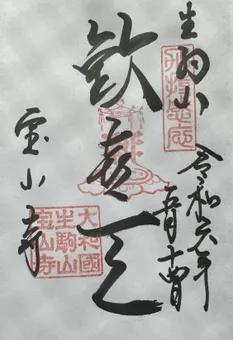 生駒山
令和六年
五月十四日
歓喜天
宝山寺
大和國
生駒山
宝山寺